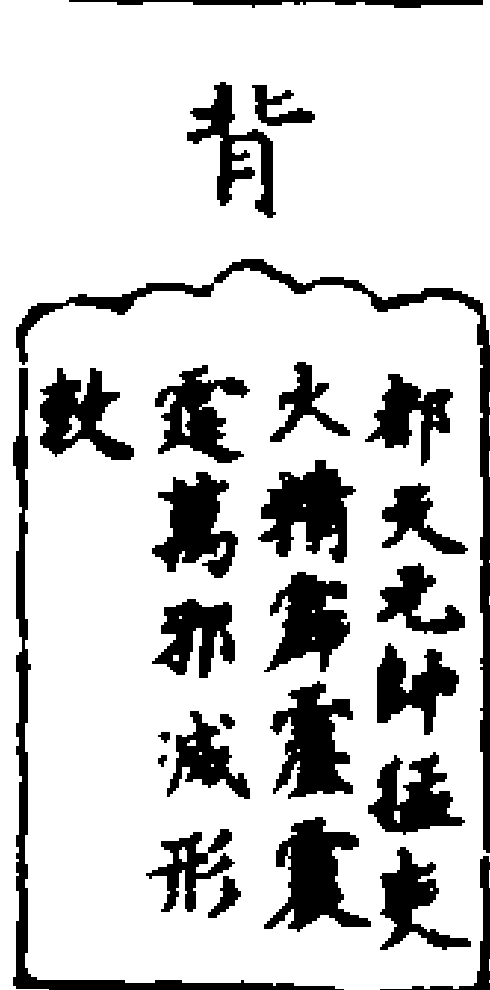 背
都天元帥猛吏
火精霹靂震
霆萬邪滅形
敕